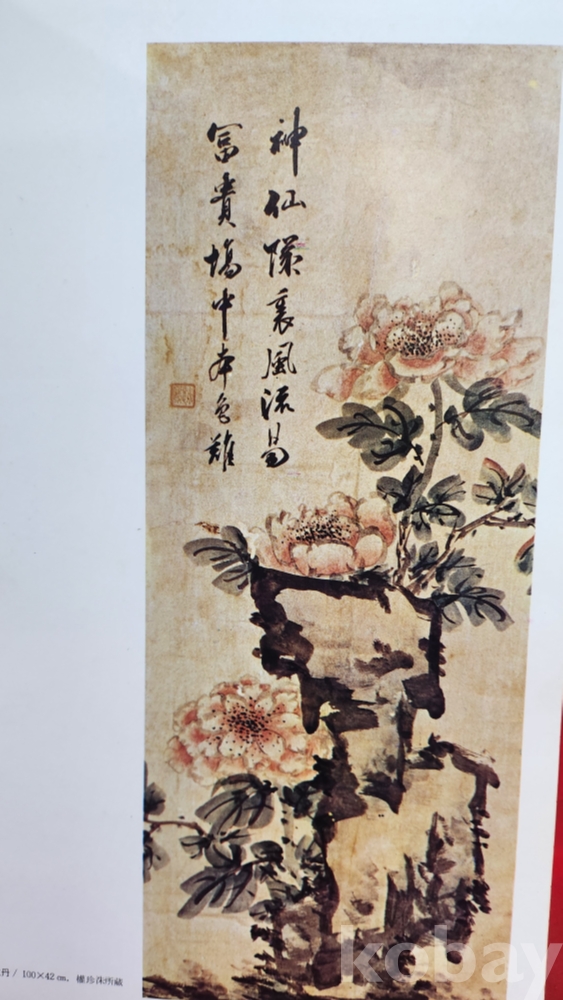 神仙隊裏風流易
富貴場中本色難
丹 / 100×42cm, 權珍洙所藏
kobay